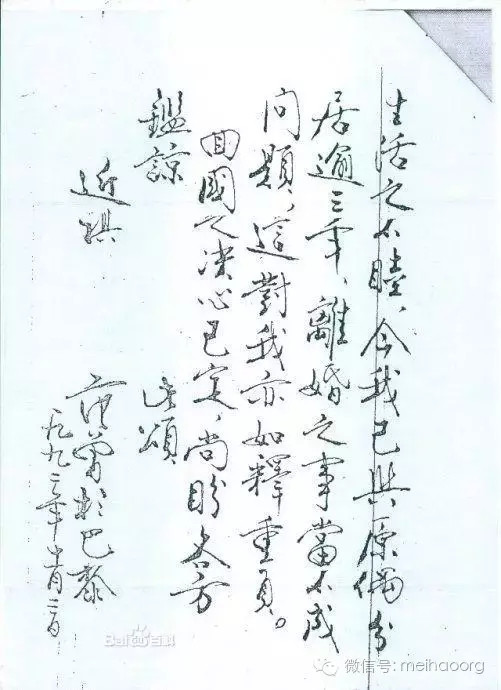 生活之不睦、今我已與原偶分
居逾三年、離婚之事當不成
問題、這對我亦如釋重負。
回國之决心已定、尚盼大方
鑑諒
此頌
近祺
范曾於巴黎
一九九二年 月二日
Bai百科
微信号: meihaoorg